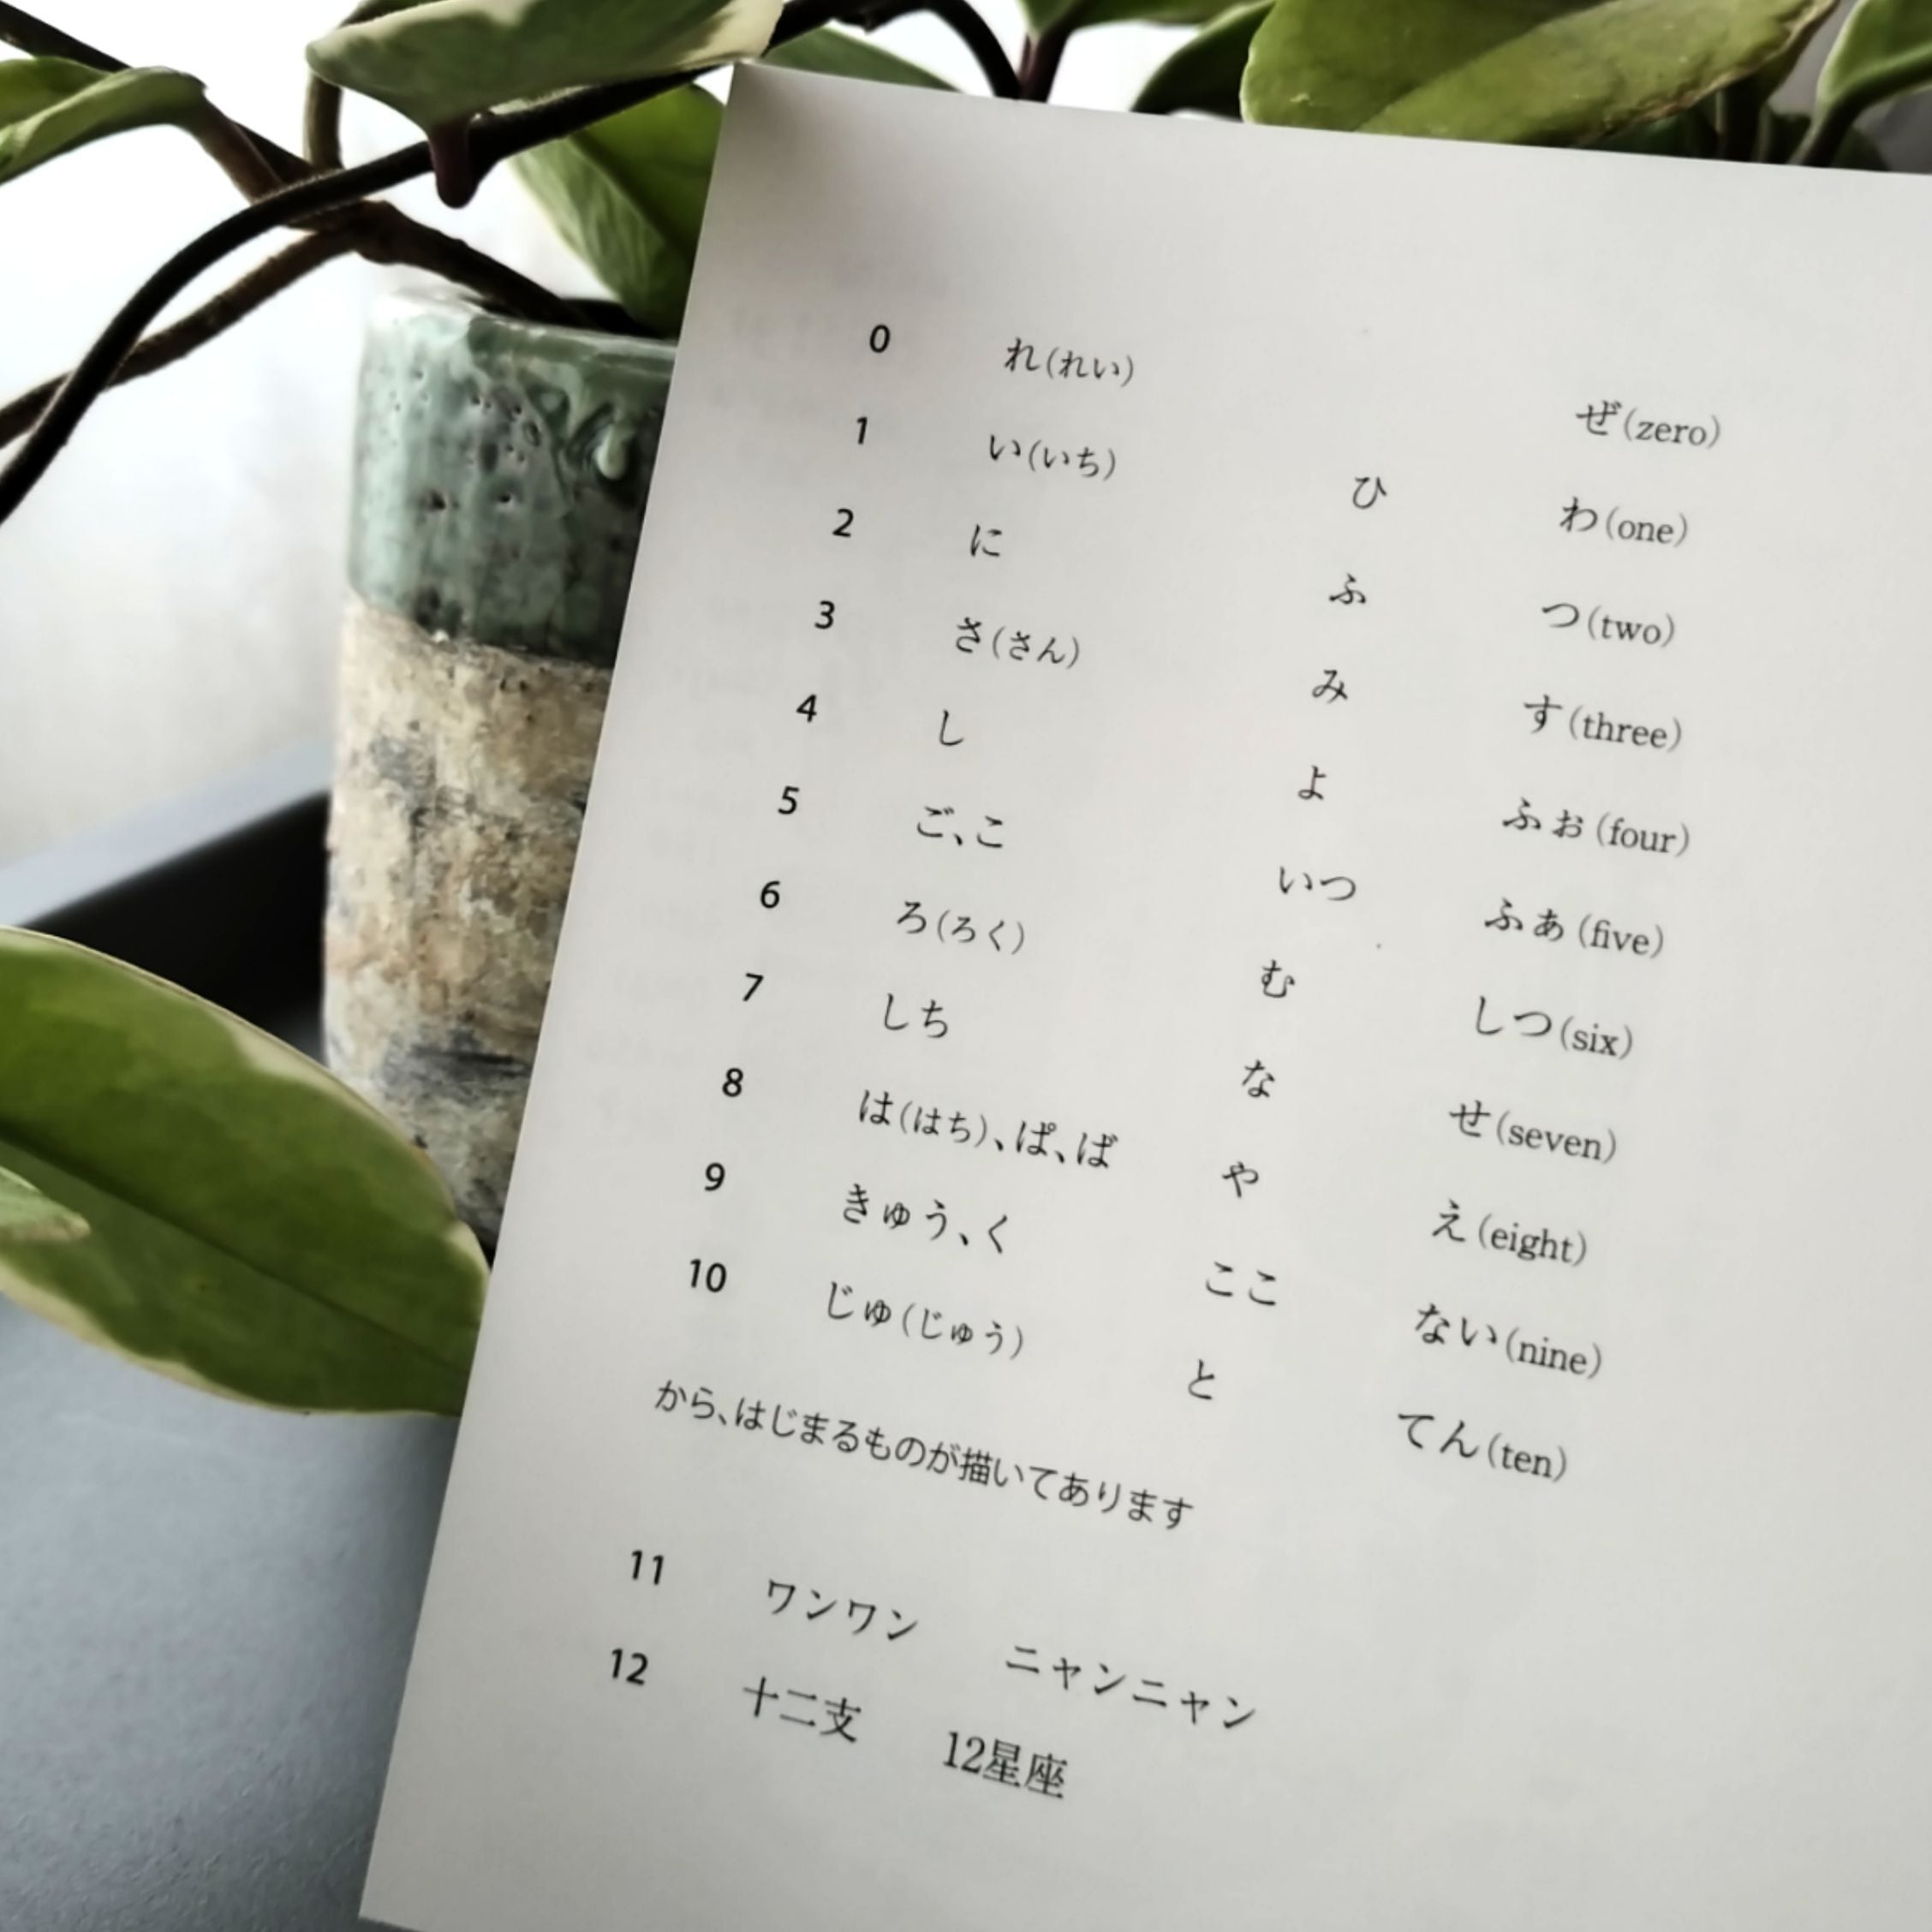 0 れ(れい) ぜ(zero)
1 い(いち) ひ わ(one)
2 に ふ つ(two)
3 さ(さん) み す(three)
4 し よ ふぉ(four)
5 ご、こ いつ ふぁ(five)
6 ろ(ろく) む しつ(six)
7 しち な せ(seven)
8 は(はち)、ぱ、ば や え(eight)
9 きゅう、く ここ ない(nine)
10 じゅ(じゅう) と てん(ten)
から、はじまるものが描いてあります
11 ワンワン ニャンニャン
12 十二支 12星座